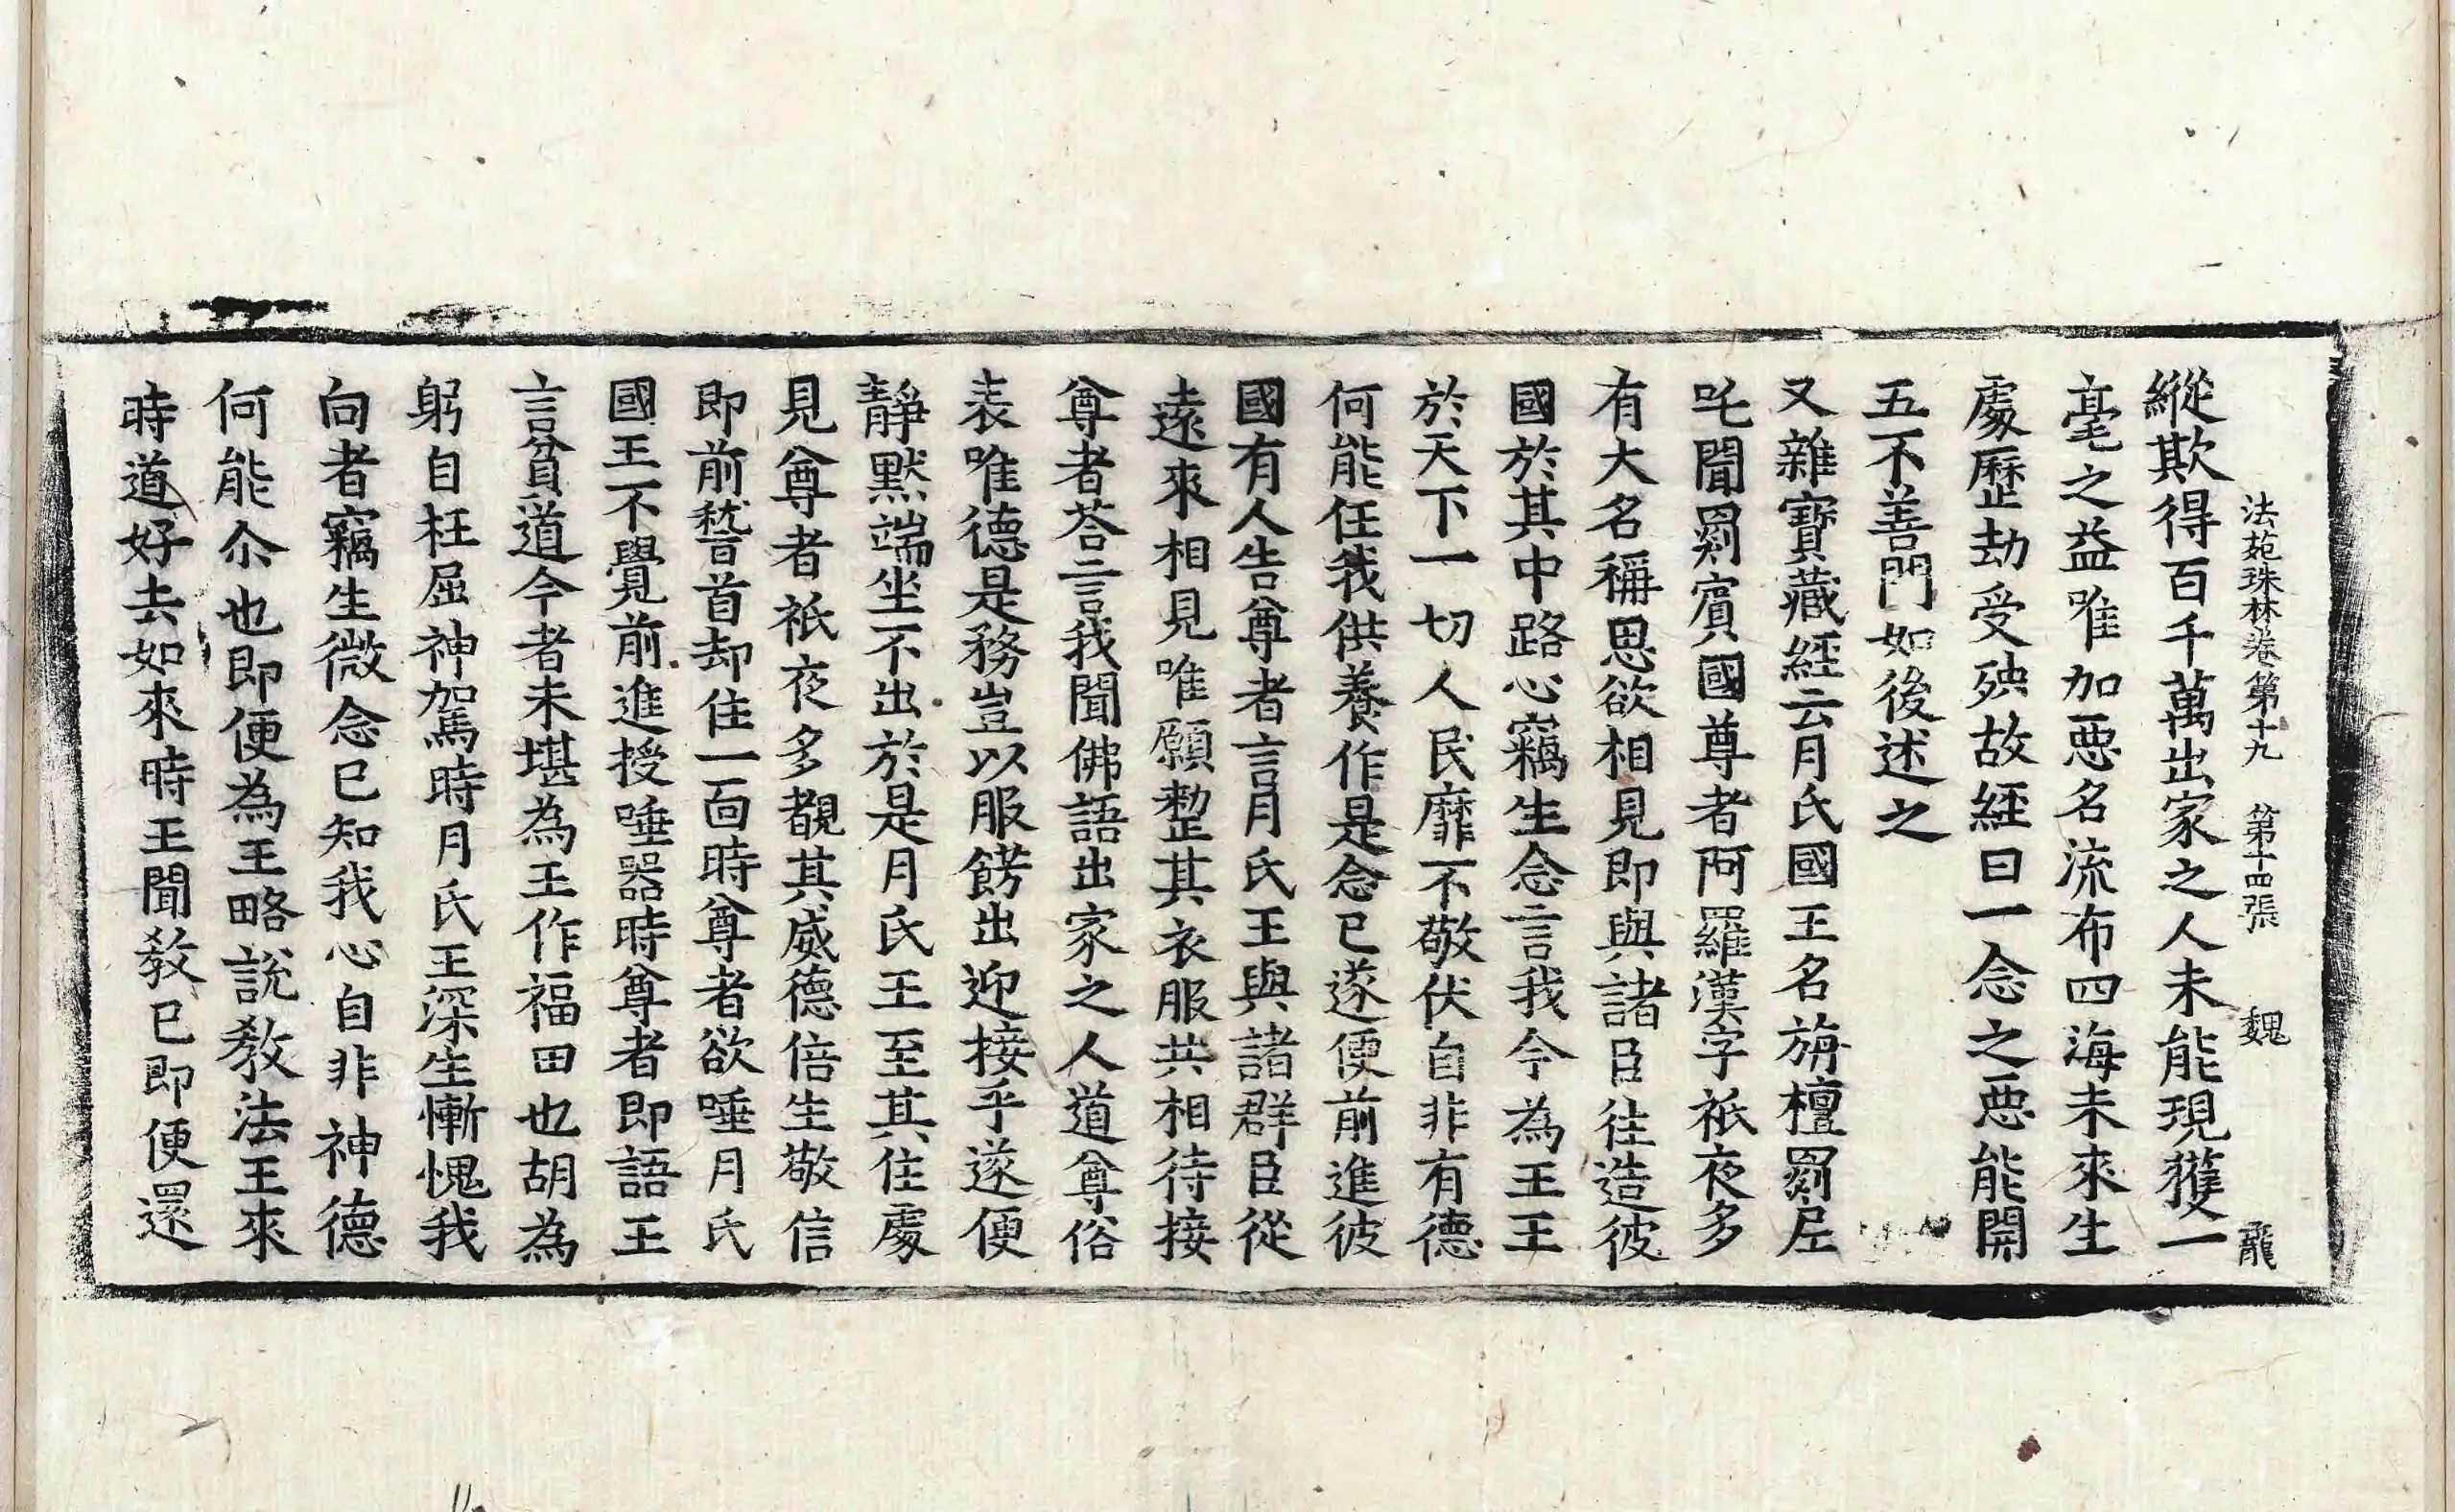 法苑珠林卷第十九　第十四張　魏　龍
縱欺得百千萬出家之人未能現獲一
毫之益唯加惡名流布四海未來生
處歷劫受殃故經曰一念之惡能開
五不善門如後述之
又雜寶藏經云月氏國王名旃檀罽尼
吒聞罽賓國尊者阿羅漢字祇夜多
有大名稱思欲相見即與諸臣往造彼
國於其中路心竊生念言我今為王王
於天下一切人民靡不敬伏自非有德
何能任我供養作是念已遂便前進彼
國有人告尊者言月氏王與諸群臣從
遠來相見唯願整其衣服共相待接
尊者荅言我聞佛語出家之人道尊俗
表唯德是務豈以服餝出迎接乎遂便
靜默端坐不出於是月氏王至其住處
見尊者祇夜多覩其威德倍生敬信
即前嵇首却住一面時尊者欲唾月氏
國王不覺前進授唾器時尊者即語王
言貧道今者未堪為王作福田也胡為
躬自枉屈神駕時月氏王深生慚愧我
向者竊生微念已知我心自非神德
何能尒也即便為王略說教法王來
時道好去如來時王聞教已即便還